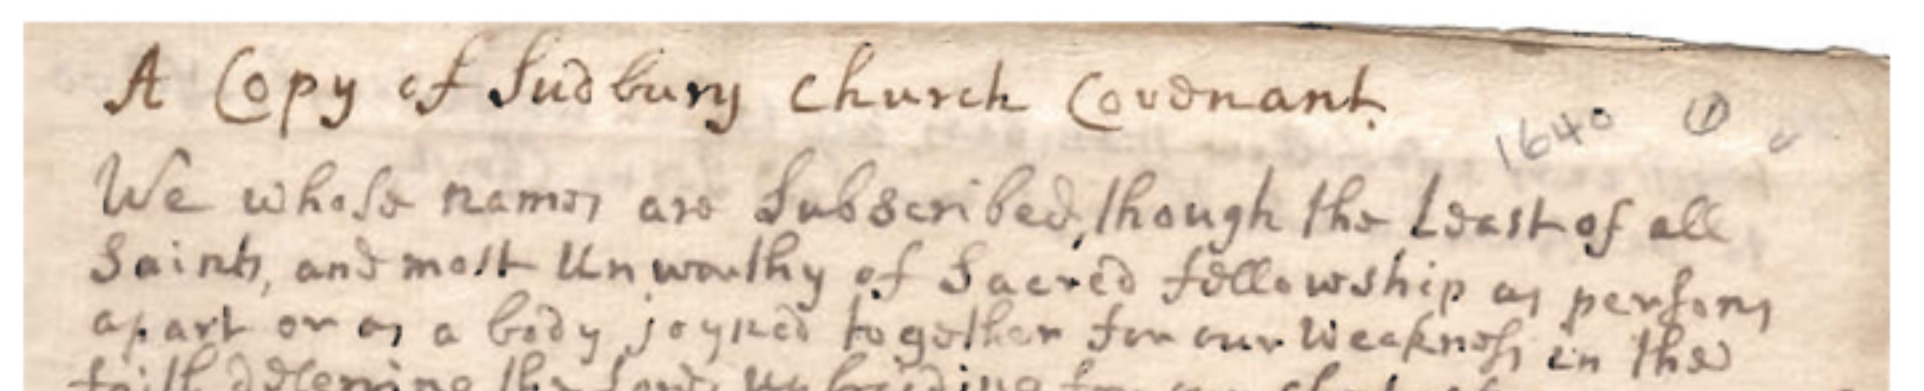 A Copy of Sudbury Church Covenant.
1640 1
We whose names are Subscribed, though the Least of all
Saints, and most Unworthy of Sacred fellowship as persons
apart or as a body joyned together for our Weakness in the
faith deserving the Lords upbraiding for our